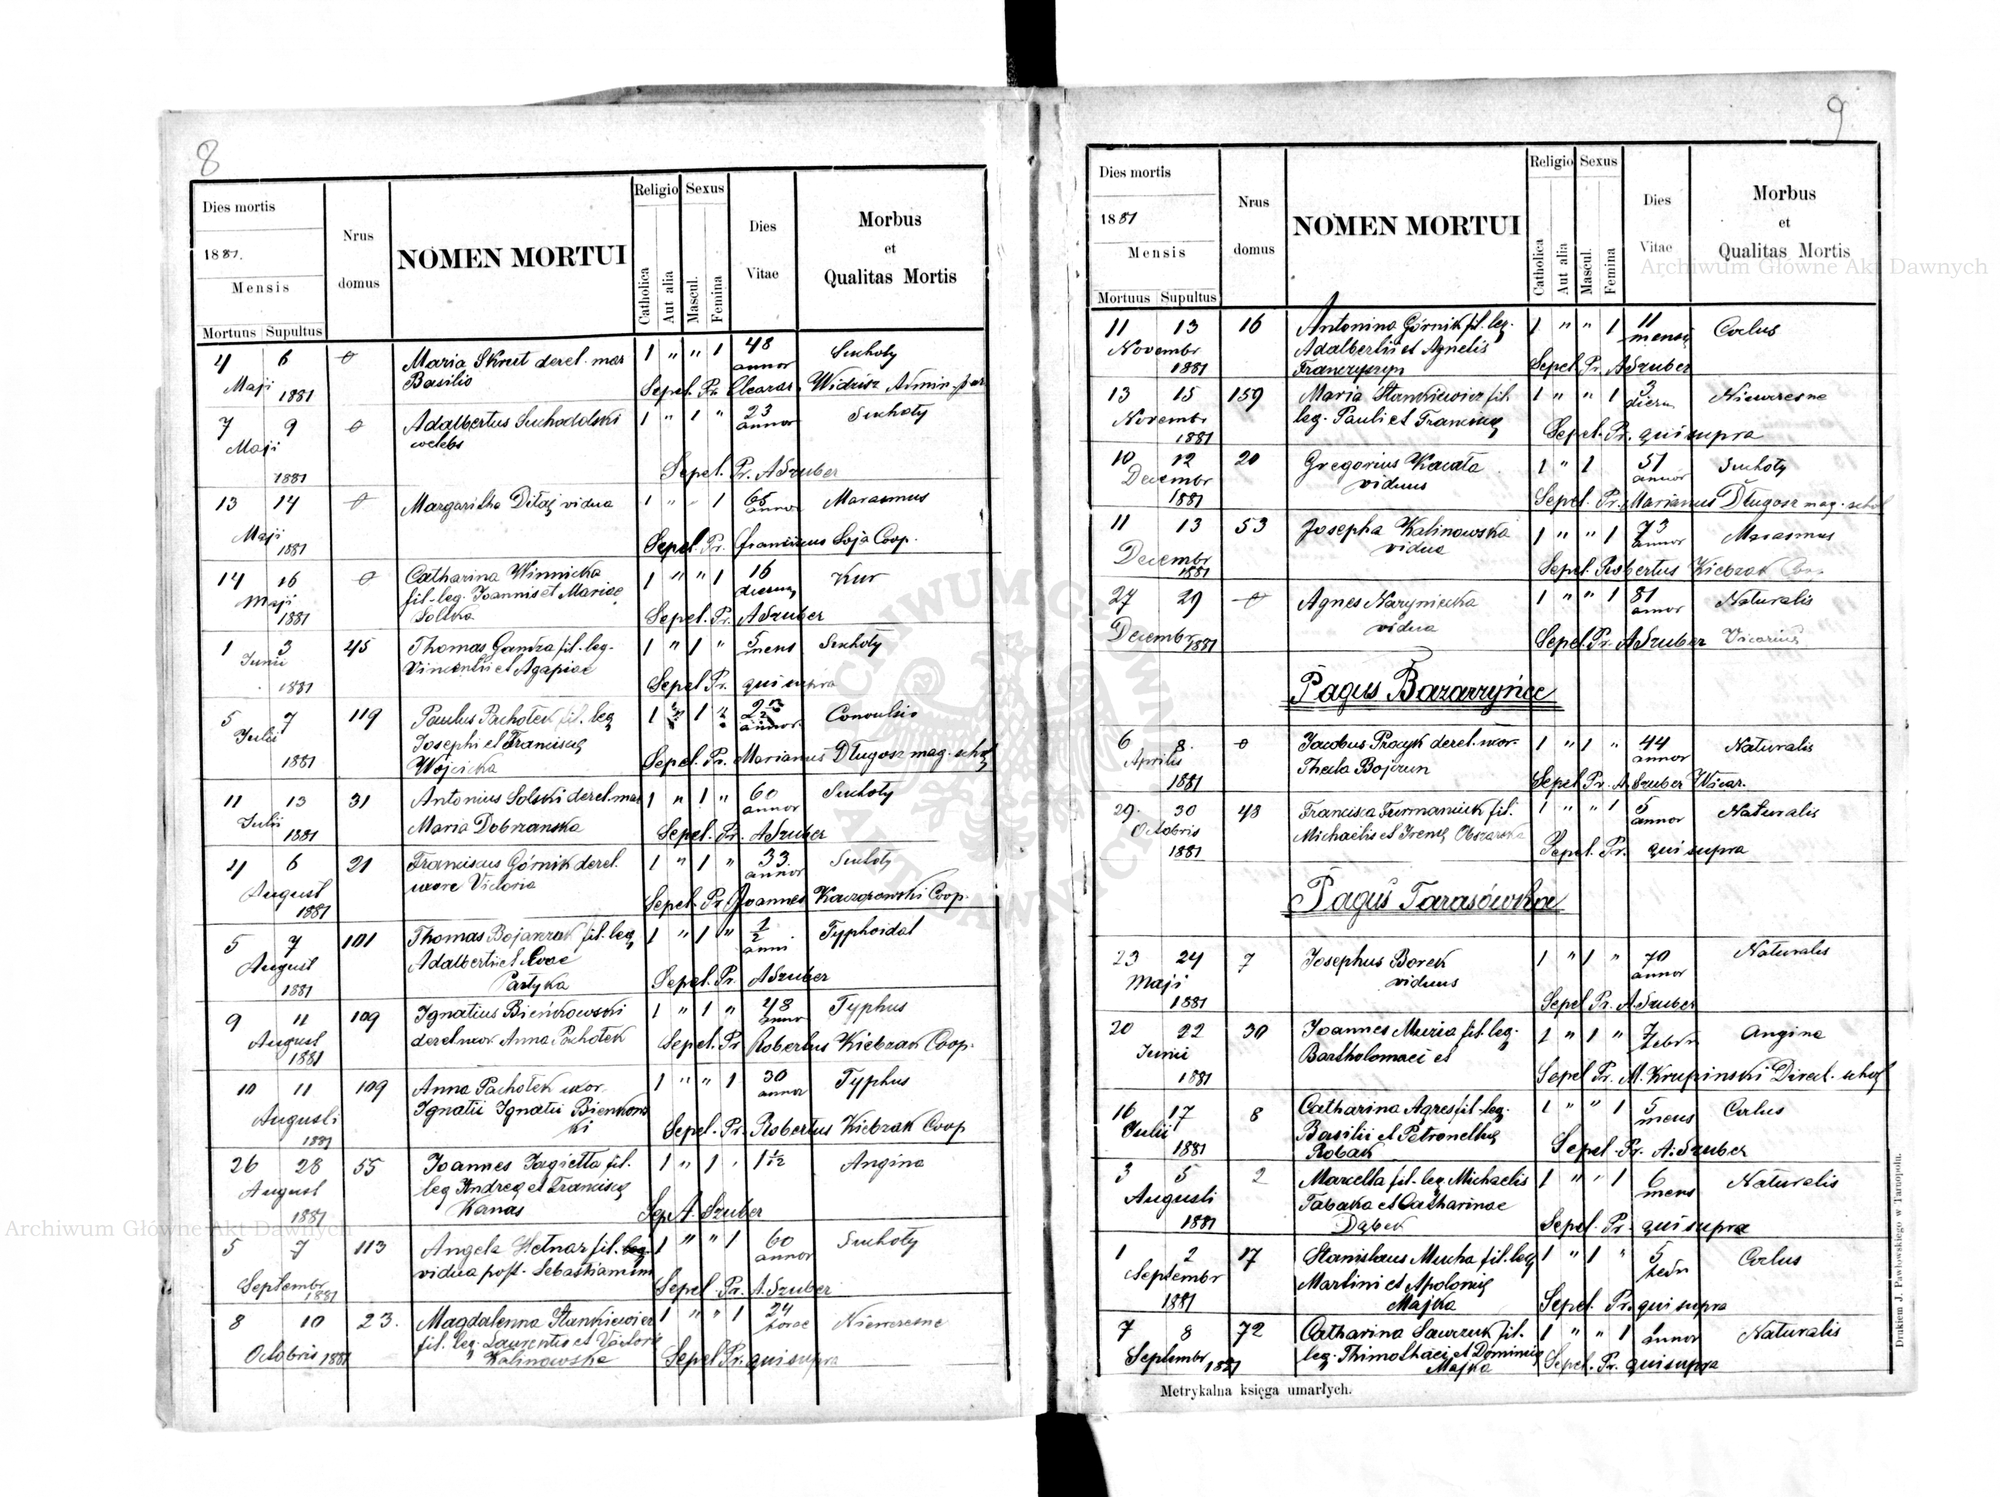 8
Dies mortis
1881.
Mensis
Mortuus Supultus
Nrus
domus
NOMEN MORTUI
Religio
Catholica
Aut alia
Sexus
Mascul.
Femina
Dies
Vitae
Morbus
et
Qualitas Mortis
4 6 Maria Skrut derel. mar 1 " " 1 48 Suchoty
Maji 1881 Basilio annor
Sepel. Pr. Widzisz Admin. par
7 9 Adalbertus Suchodolski 1 " 1 " 23 Suchoty
Maji celebs annor
1881 Sepel. Pr. A Szuber
13 14 Margaritha vidua 1 " " 1 65 Marasmus
annor
Maji 1881 Sepel. Pr. Franciscus Soja Coop.
14 16 Catharina Winnicka 1 " " 1 16 Kur
Maji fil. leg. Joannis et Mariae dierum
1881 Solska Sepel. Pr. A Szuber
1 3 45 Thomas fil. leg. 1 " 1 " 5 Suchoty
Junii Vincentii et Agapiae mens
1881 Sepel. Pr. qui supra
5 7 119 Paulus Pachołek fil. leg 1 1 Convulsio
Julii Josephi et Franciscę annor.
1881 Wójcicka Sepel. Pr. Marianus Długosz mag. schol
11 13 31 Antonius Solski derel. mar 1 " 1 " 60 Suchoty
Julii annor
1881 Maria Dobrzańska Sepel. Pr. A Szuber
4 6 21 Franciscus Górnik derel. 1 " 1 " 33. Suchoty
August uxore Victoria annor
1881 Sepel. Pr. Joannes Kaczorowski Coop.
5 7 101 Thomas fil. leg. 1 " 1 " 1/2 Typhoidal
August Adalberti et Evae anni
1881 Partyka Sepel. Pr. A Szuber
9 11 109 Ignatius Bieńkowski 1 " 1 " 48 Typhus
August derel. uxor Anna Pachołek annor
1881 Sepel. Pr. Robertus Kiebzak Coop.
10 11 109 Anna Pachołek uxor. 1 " " 1 30 Typhus
Augusti Ignatii Ignatii Bienkow annor
ski
1881 Sepel. Pr. Robertus Kiebzak Coop
26 28 55 Joannes Jagiełła fil. 1 " 1 . 1 1/12 Angina
August leg Andreę et Franciscę
1881 Kanas Sep. A. Szuber
5 7 113 Angela Hetnar fil. leg. 1 " " 1 60 Suchoty
vidua post. Sebastianum annor
Septembr 1881 Sepel. Pr. A. Szuber
8 10 23. Magdalenna Stankiewicz 1 " " 1 24 Niewczesne
fil. leg. Laurentis et Victorię horae
Octobris 1881 Kalinowska Sepel Pr. qui supra
9
Dies mortis
1881
Mensis
Mortuus Supultus
Nrus
domus
NOMEN MORTUI
Religio
Catholica
Aut alia
Sexus
Mascul.
Femina
Dies
Vitae
Morbus
et
Qualitas Mortis
11 13 16 Antonina Górnik fil. leg. 1 " " 1 11 Coelus
Novembr Adalbertii et Agnelis mensię
1881 Franczyszyn Sepel. Pr. A Szuber
13 15 159 Maria Stankiewicz fil. 1 " " 1 3 Niewczesne
Novembr leg. Pauli et Franciscę dierum
1881 Sepel. Pr. qui supra
10 12 20 Gregorius 1 " 1 51 Suchoty
Decembr viduus annor
1881 Sepel. Pr. Marianus Długosz mag. schol
11 13 53 Josepha Kalinowska 1 " " 1 73 Marasmus
Decembr vidua annor
1881 Sepel. Robertus Kiebzak Coop
27 29 Agnes Naryniecka 1 " " 1 81 Naturalis
vidua annor
Decembr 1881 Sepel. Pr. A Szuber Vicarius
Pagus Bazarzyńce
6 8. Jacobus Procyk derel. uxor. 1 " 1 " 44 Naturalis
Aprilis Thecla Bojczun annor
1881 Sepel. Pr. A. Szuber Wicar.
29. 30 48 Francisca Furmaniuk fil. 1 " " 1 5 Naturalis
Octobris Michaelis et Irenę Obszarska annor
1881 Sepel. Pr. qui supra
Pagus Tarasówka
23 24 7 Josephus Borek 1 " 1 " 70 Naturalis
Maji viduus annor
1881 Sepel. Pr. A Szuber
20 22 30 Joannes Muzia fil. leg. 1 " 1 " 7 Angina
Junii Bartholomaei et
1881 Sepel Pr. M. Krupinski Direct. schol
16 17 8 Catharina Agres fil. leg. 1 " " 1 5 Coelus
Julii Basilii et Petronellę mens
1881 Robak Sepel. Pr. A. Szuber
3 5 2 Marcella fil. leg Michaelis 1 " " 1 6 Naturalis
Augusti Tabaka et Catharinae mens
1881 Dąbek Sepel. Pr. qui supra
1 2 17 Stanislaus Mucha fil. leg 1 " 1 " 5 Coelus
Septembr Martini et Apolonię
1881 Majka Sepel. Pr. qui supra
7 8 72 Catharina Sawczuk fil. 1 " " 1 1 Naturalis
leg. Thimothaei et Dominicę annor
Septembr 1881 Majka Sepel. Pr. qui supra
Metrykalna księga umarłych.
Drukiem J. Pawłowskiego w Tarnopolu.
Archiwum Główne Akt Dawnych
Archiwum Główne Akt Dawnych
ARCHIWUM GŁÓWNE AKT DAWNYCH